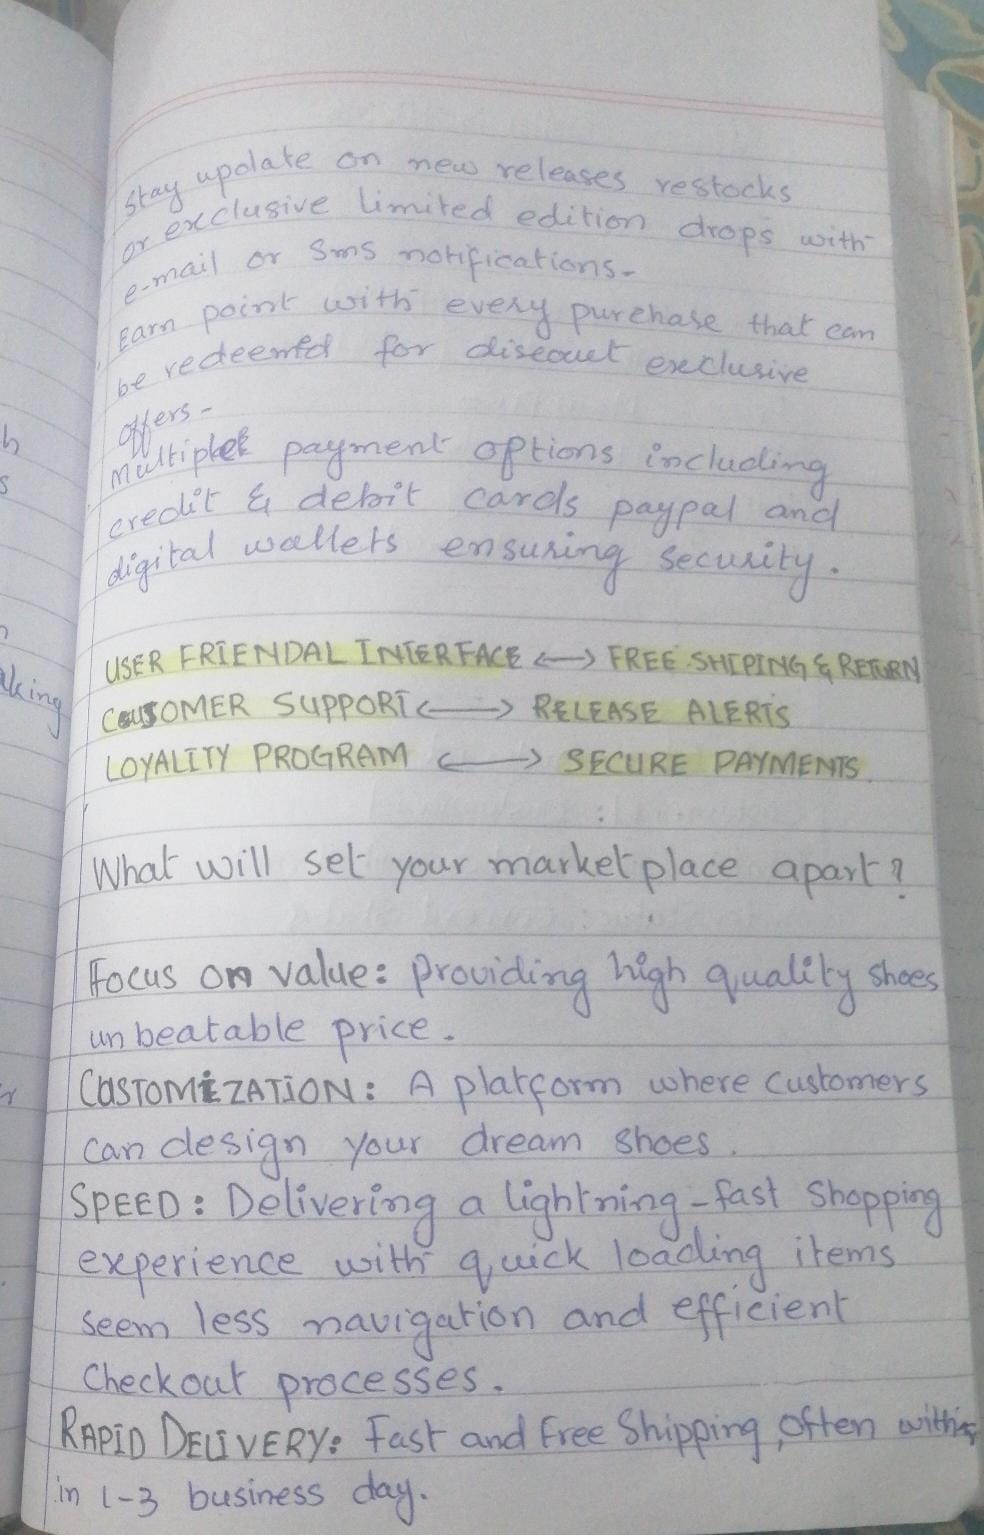 h
s
n
aking
r
Stay update on new releases restocks
or exclusive limited edition drops with
e-mail or Sms notifications-
Earn point with every purchase that can
be redeemed for discout exclusive
offers-
Multiple payment options including
credit & debit cards paypal and
digital wallets ensuring security.
USER FRIENDAL INTERFACE <-> FREE SHIPING & RETURN
COUSOMER SUPPORT <-> RELEASE ALERTS
LOYALITY PROGRAM <-> SECURE PAYMENTS
What will set your market place apart?
Focus on value: Providing high quality shoes
unbeatable price.
CUSTOMIZATION: A platform where customers
can design your dream shoes.
SPEED: Delivering a lightning-fast shopping
experience with quick loading items
seem less navigation and efficient
Checkout processes.
RAPID DELIVERY: Fast and free Shipping, Often with
in 1-3 business day.